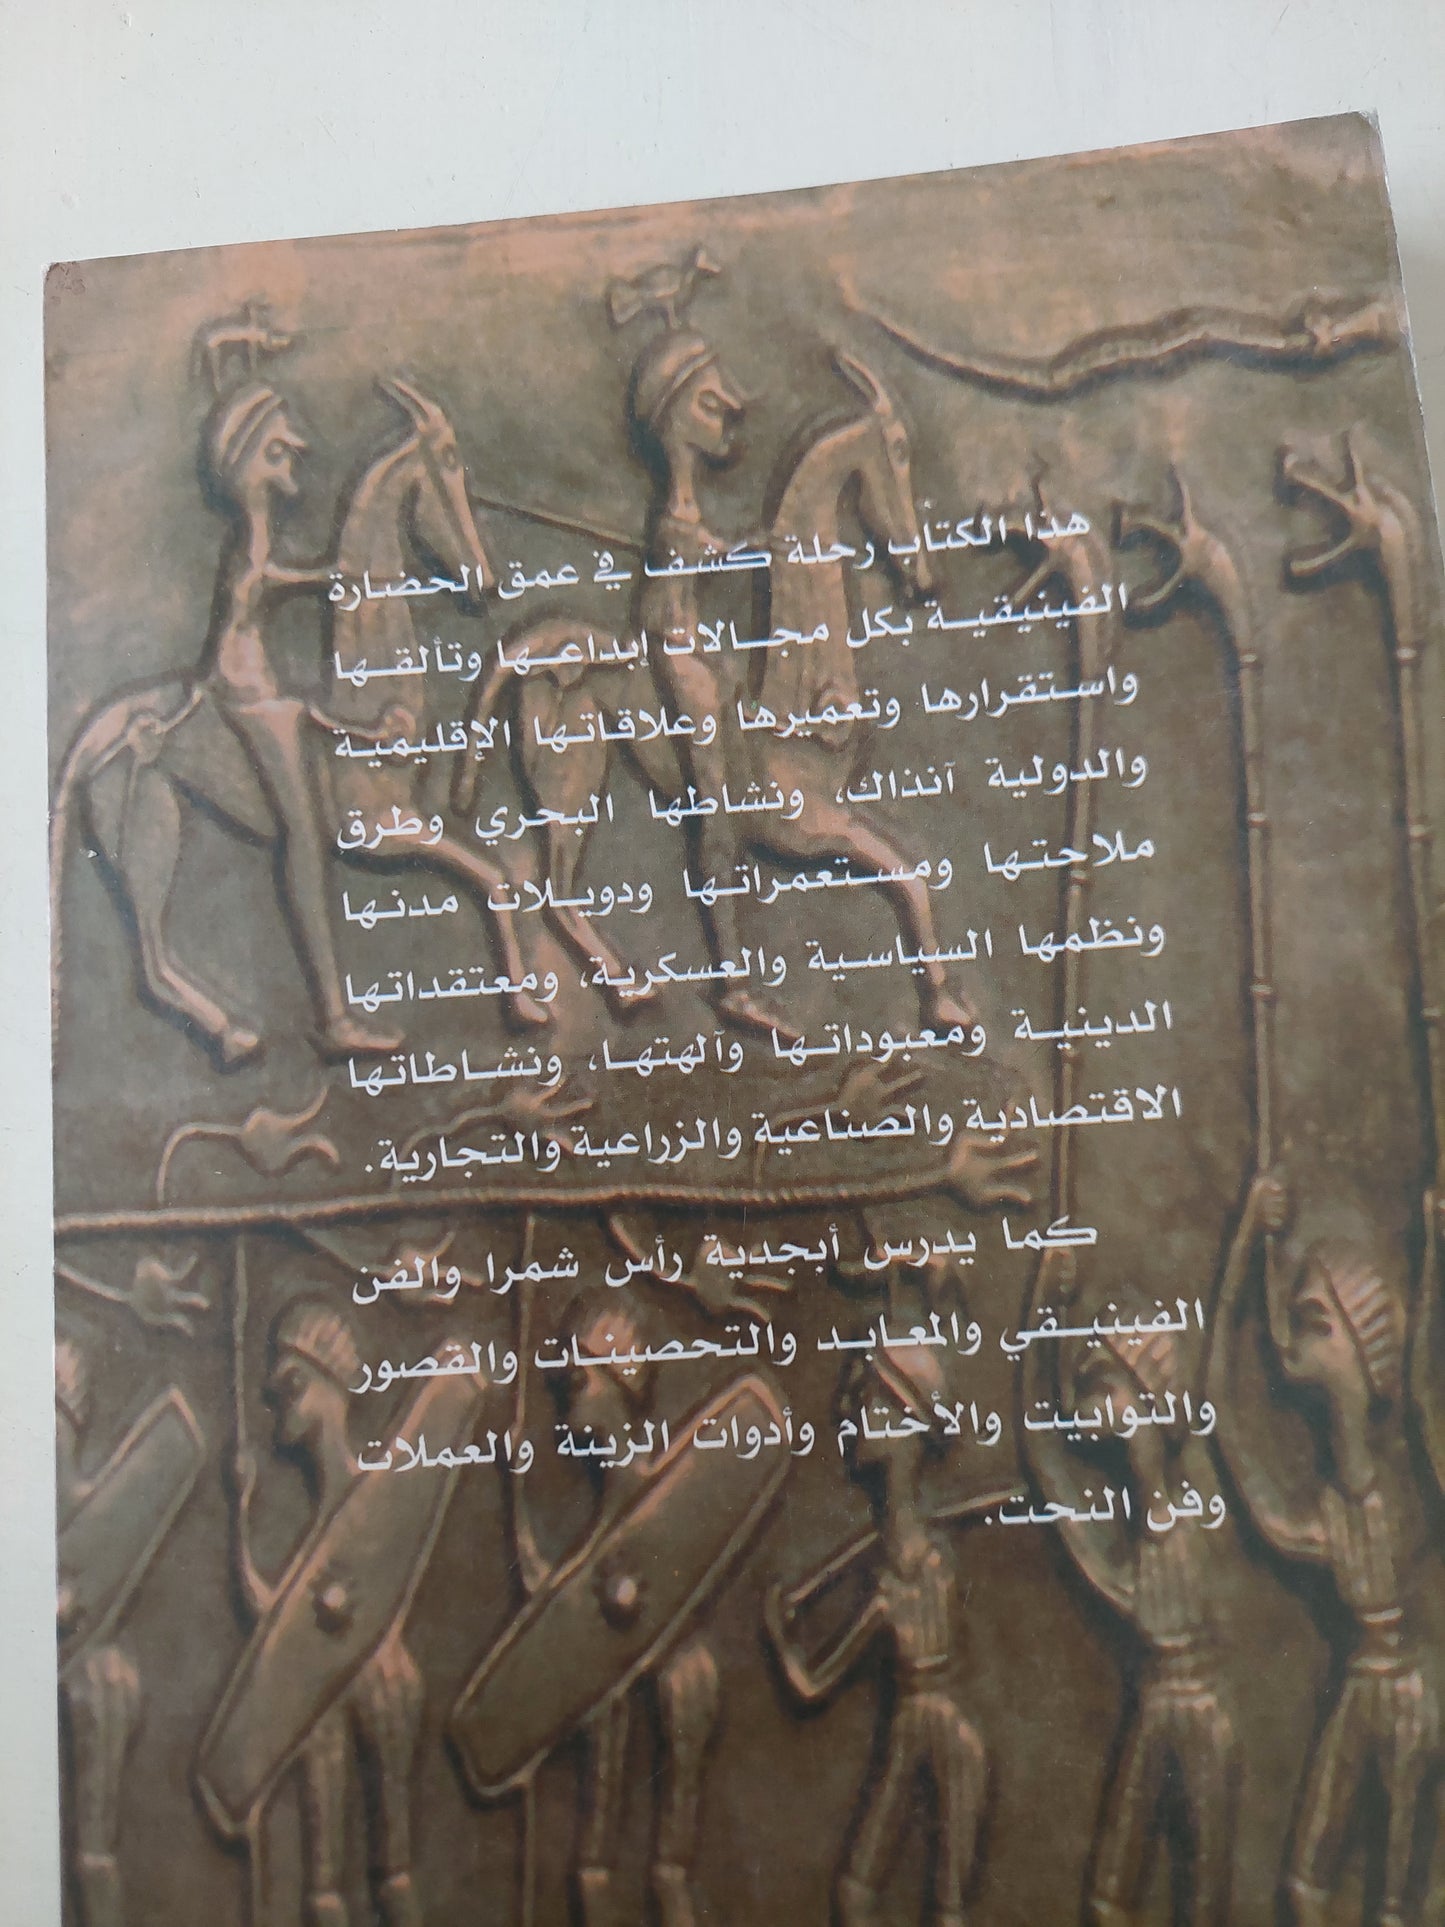 هذا الكتاب رحلة كشف في عمق الحضارة
الفينيقية بكل مجالات إبداعها وتألقها
واستقرارها وتعميرها وعلاقاتها الإقليمية
والدولية آنذاك، ونشاطها البحري وطرق
ملاحتها ومستعمراتها ودويلات مدنها
ونظمها السياسية والعسكرية، ومعتقداتها
الدينية ومعبوداتها وآلهتها، ونشاطاتها
الاقتصادية والصناعية والزراعية والتجارية.
كما يدرس أبجدية رأس شمرا والفن
الفينيقي والمعابد والتحصينات والقصور
والتوابيت والأختام وأدوات الزينة والعملات
وفن النحت.